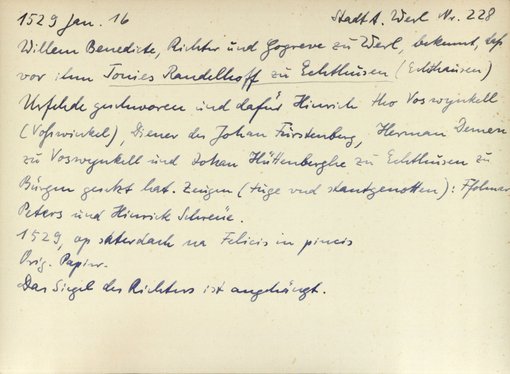 1529 Jan. 16 Stadt A. Werl Nr. 228
Willem Benedicte, Richter und Gogreve zu Werl, bekennt, daß
vor ihm Tonies Randelhoff zu Echthusen (Echthausen)
Urfehde geschworen und dafür Hinrich tho Voswynkell
(Voßwinkel), Diener des Johan Fürstenberg, Herman Demen
zu Voswynkell und Johan Hüttenberghe zu Echthusen zu
Bürgen gesetzt hat. Zeugen (Tüge vnd stantgenotten): Ffolmar
Peters und Hinrick Schreue.
1529, op saterdach na Felicis in pincis
Orig. Papier.
Das Siegel des Richters ist angehängt.